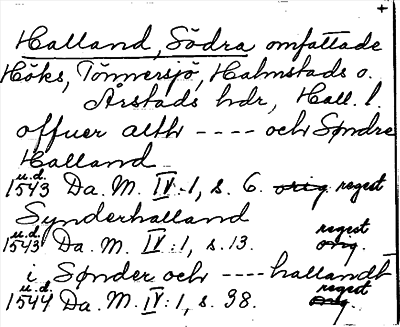 +
Halland, Södra omfattade
Höks, Tönnersjö, Halmstads o.
Årstads hdr, Hall. l.
offuer alth ---- och Søndre
Halland
u.d.
1543 Da. M. IV:1, s. 6. orig regest
Synderhalland
u.d. regest
1543 Da. M. IV:1, s. 13. orig.
i Sønder och ---- hallandt
u.d. regest
1544 Da. M. IV:1, s. 98. orig.